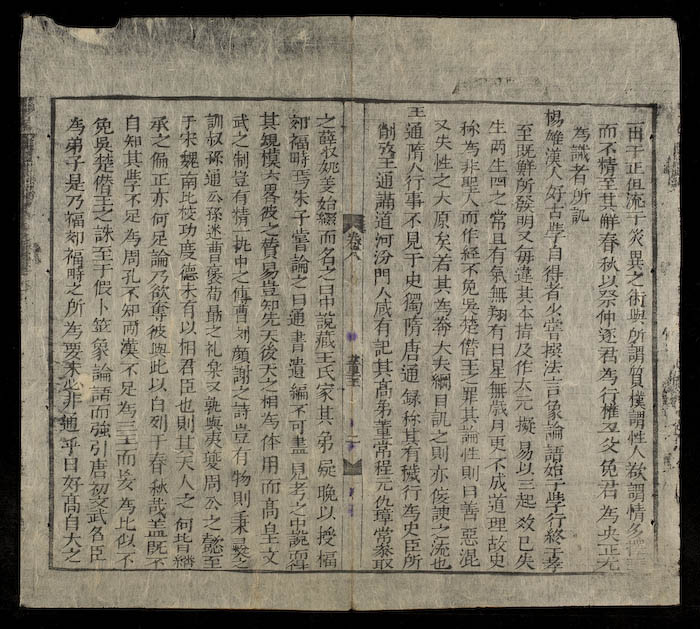 一由于正但流于災異之術與所謂質樸謂性人欲謂情多擇
而不精至其解春秋以祭仲逐君為行權丑父免君為失正尤
為識者所訿
楊雄漢人好古學自得者少嘗撰法言象論語始于學行終于孝
至既鮮所發明又毎違其本指及作太元擬易以三起數已失
生兩生四之常且有氣無朔有日星無歲月更不成道理故史
称為非聖人而作經不免吳楚僣王之罪其論性則曰善惡混
又失性之大原矣若其為莾大夫綱目訊之則亦俊諛之流也
王通隋人行事不見于史獨隋唐通錄称其有穢行為史臣所
削攷王通講道河汾門人咸有記其高弟董常程元仇璋常参取
之薛收姚義始綴而名之曰中說藏王氏家其弟凝晚以授福
郊福畤焉朱子嘗論之曰通書遺編不可盡見考之中說而得
其規模大畧彼之賛易豈知先天後天之相為体用而高皇文
武之制豈有精一執中之傳曹刘顏謝之詩豈有物則秉彛之
訓叔孫通公孫述曹褒荀勗之礼楽又孰與夷夔周公之懿至
于宋魏南北校功度德未有以相君臣也則其天人之何皆續
承之偏正亦何足論乃欲奪彼與此以自列于春秋哉盖既不
自知其學不足為周孔不知兩漢不足為三王而妄為比似不
免吳楚僣王之誅至于假卜筮象論語而強引唐初文武名臣
為弟子是乃福郊福畤之所為要未必非通乎日好高自大之